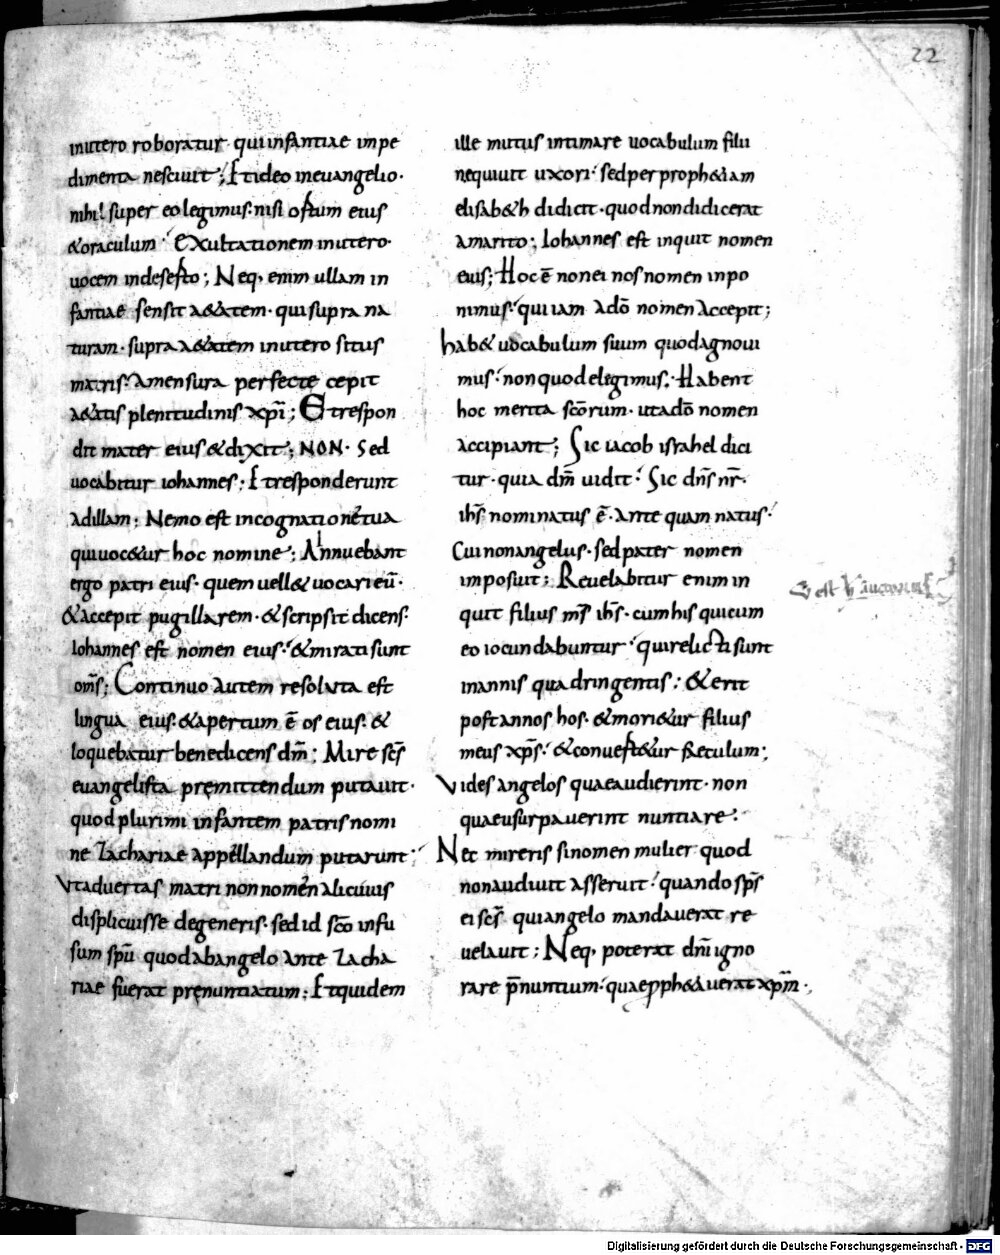 22
inutero roboratur qui infantiae impe
dimenta nesciuit; Et ideo ineuangelio·
nihil super eo legimus· nisi ortum eius
& oraculum· Exultationem inutero·
uocem indeserto; Neq· enim ullam in
fantiae sensit a&atem· qui supra na
turam· supra a&atem inutero situs
matris· Amensura perfecte cepit
a&atis plenitudinis xp̄i; Et respon
dit mater eius & dixit; NON· Sed
uocabitur iohannes; Et responderunt
adillam; Nemo est incognatione tua
qui uoc&ur hoc nomine; Annuebant
ergo patri eius· quem uell& uocari eū·
& accepit pugillarem· & scripsit dicens·
Iohannes est nomen eius· & mirati sunt
om̄s; Continuo autem resoluta est
lingua eius· & apertum ē os eius· &
loquebatur benedicens dm̄; Mire sc̄s
euangelista pręmittendum putauit·
quod plurimi infantem patris nomi
ne Zachariae appellandum putarunt;
Vt aduertas matri non nomen alicuius
displicuisse degeneris· sed id sc̄o infu
sum sp̄u quod abangelo ante Zacha
riae fuerat prenuntiatum; Et quidem
ille mutus intimare uocabulum filii
nequiuit uxori· sed per proph&iam
elisab&h didicit· quod non didicerat
amarito; Iohannes est inquit nomen
eius; Hoc ē non ei nos nomen inpo
nimus· qui iam ado̅ nomen accepit;
hab& uocabulum suum quod agnoui
mus· non quod elegimus; Habent
hoc merita sc̄orum· ut ado̅ nomen
accipiant; Sic iacob israhel dici
tur· quia dm̄ uidit· Sic dn̄s nr̄·
ih̄s nominatus ē· ante quam natus·
Cui non angelus· sed pater nomen
imposuit; Reuelabitur enim in
quit filius m̄s ih̄s· cum his qui cum
eo iocundabuntur· qui relicti sunt
in annis quadringentis; & erit
post annos hos· & mori&ur filius
meus xp̄s· & conuert&ur sæculum;
Vides angelos quae audierint· non
quae usurpauerint nuntiare·
Nec mireris si nomen mulier quod
non audiuit asseruit· quando sp̄s
ei sc̄s qui angelo mandauerat re
uelauit; Neq· poterat dn̄i igno
rare p̄nuntium· quae proph&auerat xp̄m·
Digitalisierung gefördert durch die Deutsche Forschungsgemeinschaft - DFG